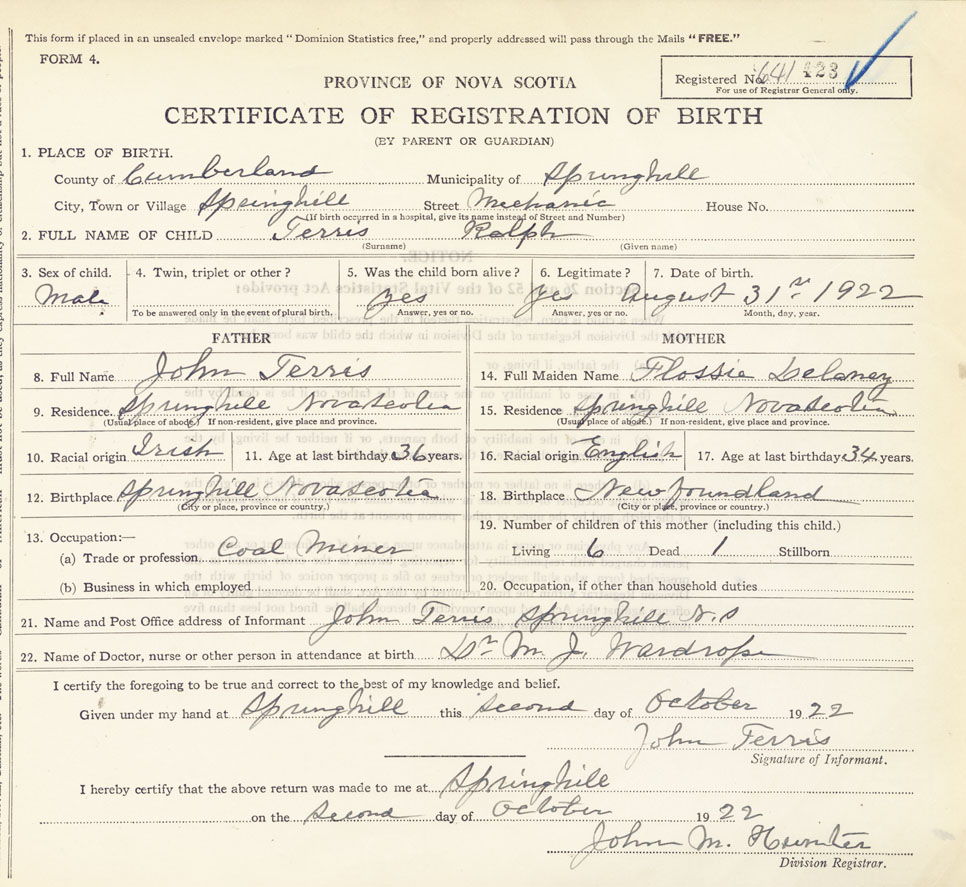 This form if placed in an unsealed envelope marked "Dominion Statistics free," and properly addressed will pass through the Mails "FREE."
FORM 4.
Registered No. 641 423
For use of Registrar General only.
PROVINCE OF NOVA SCOTIA
CERTIFICATE OF REGISTRATION OF BIRTH
(BY PARENT OR GUARDIAN)
1. PLACE OF BIRTH.
County of Cumberland Municipality of Springhill
City, Town or Village Springhill Street Mechanic House No.
(If birth occurred in a hospital, give its name instead of Street and Number)
2. FULL NAME OF CHILD Terris Ralph
(Surname) (Given name)
3. Sex of child. 4. Twin, triplet or other? 5. Was the child born alive? 6. Legitimate? 7. Date of birth.
Male yes yes August 31st 1922
To be answered only in the event of plural birth. Answer, yes or no. Answer, yes or no. Month, day, year.
FATHER MOTHER
8. Full Name John Terris 14. Full Maiden Name Flossie Delaney
9. Residence. Springhill Nova Scotia 15. Residence Springhill Nova Scotia
(Usual place of abode.) If non-resident, give place and province. (Usual place of abode.) If non-resident, give place and province.
10. Racial origin Irish 11. Age at last birthday 36 years. 16. Racial origin English 17. Age at last birthday 34 years.
12. Birthplace Springhill Nova Scotia 18. Birthplace Newfoundland
(City or place, province or country.) (City or place, province or country.)
13. Occupation:— 19. Number of children of this mother (including this child.)
(a) Trade or profession Coal Miner Living 6 Dead 1 Stillborn
(b) Business in which employed 20. Occupation, if other than household duties
21. Name and Post Office address of Informant John Terris Springhill N.S
22. Name of Doctor, nurse or other person in attendance at birth Dr M. J. Wardrope
I certify the foregoing to be true and correct to the best of my knowledge and belief.
Given under my hand at Springhill this second day of October 1922
John Terris
Signature of Informant.
I hereby certify that the above return was made to me at Springhill
on the second day of October 1922
John M. Hunter
Division Registrar.